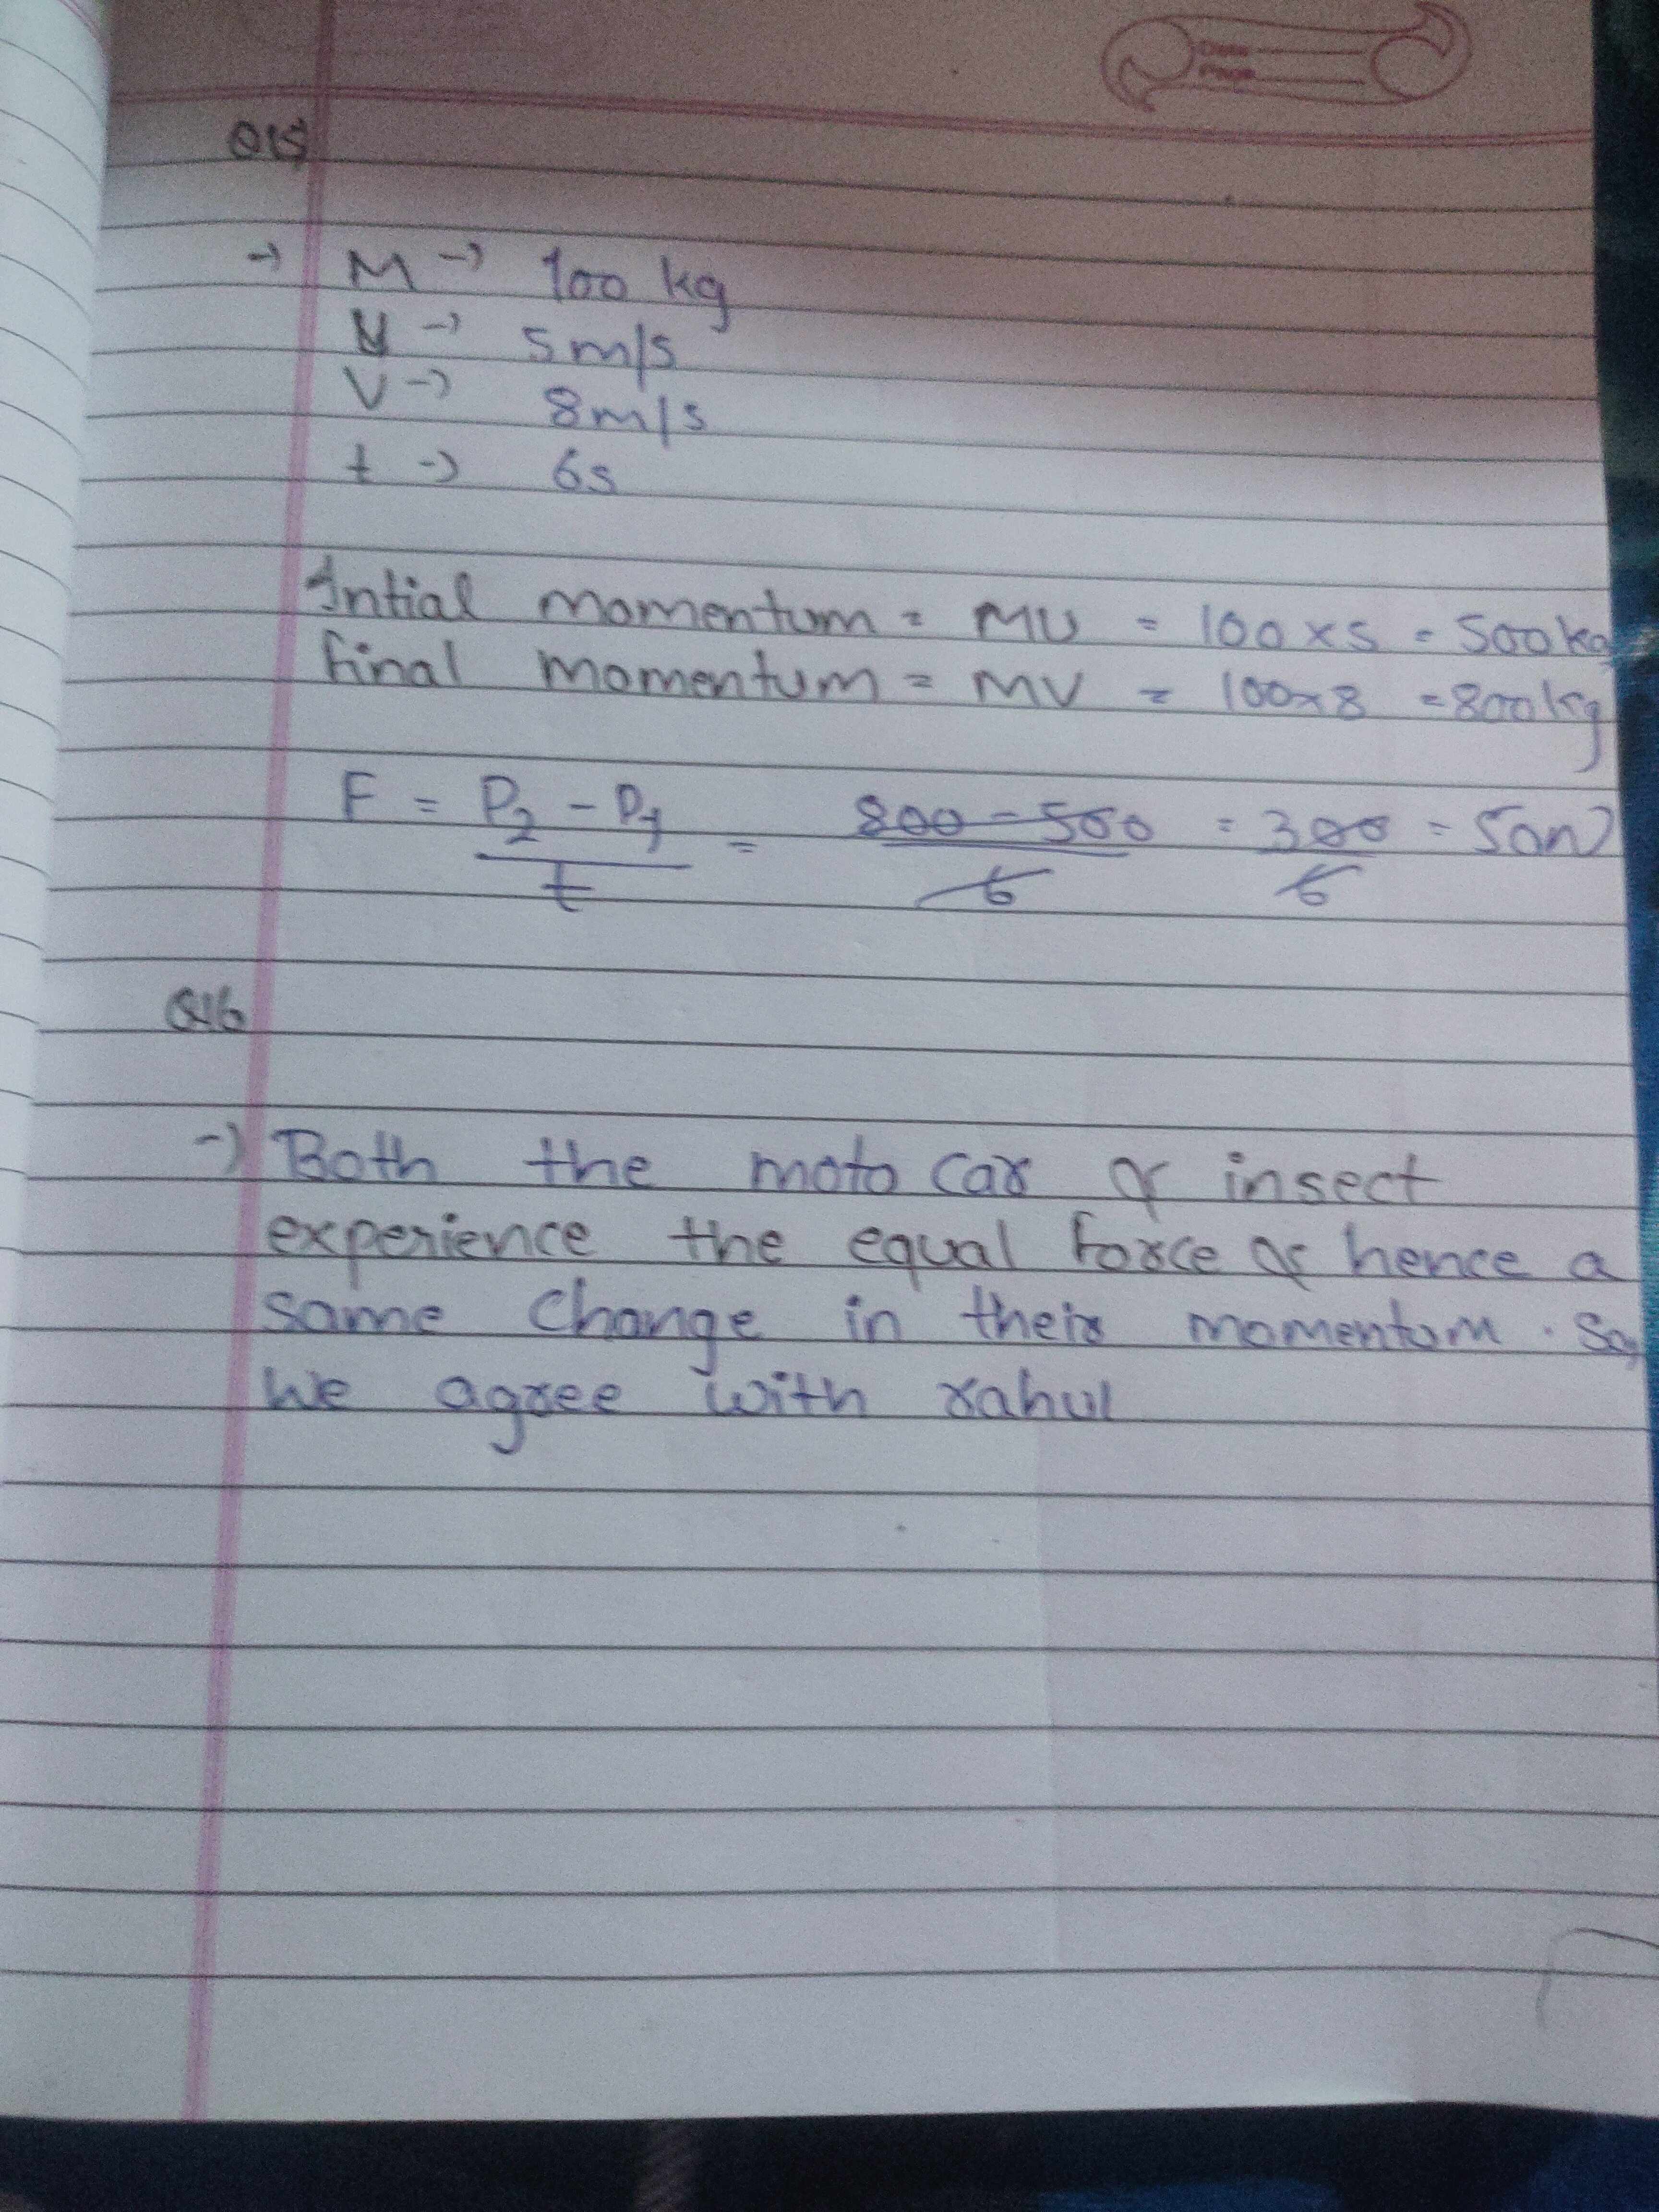 Date
Page
Q15
→ M → 100 kg
U → 5m/s
V → 8m/s
t → 6s
Intial momentum = MU = 100 x 5 = 500 kg
Final momentum = MV = 100x8 = 800 kg
F = P2 - P1 / t = 800 - 500 / 6 = 300 / 6 = 50N
Q16
→ Both the moto car & insect
experience the equal force & hence a
same change in their momentum. So,
We agree with rahul